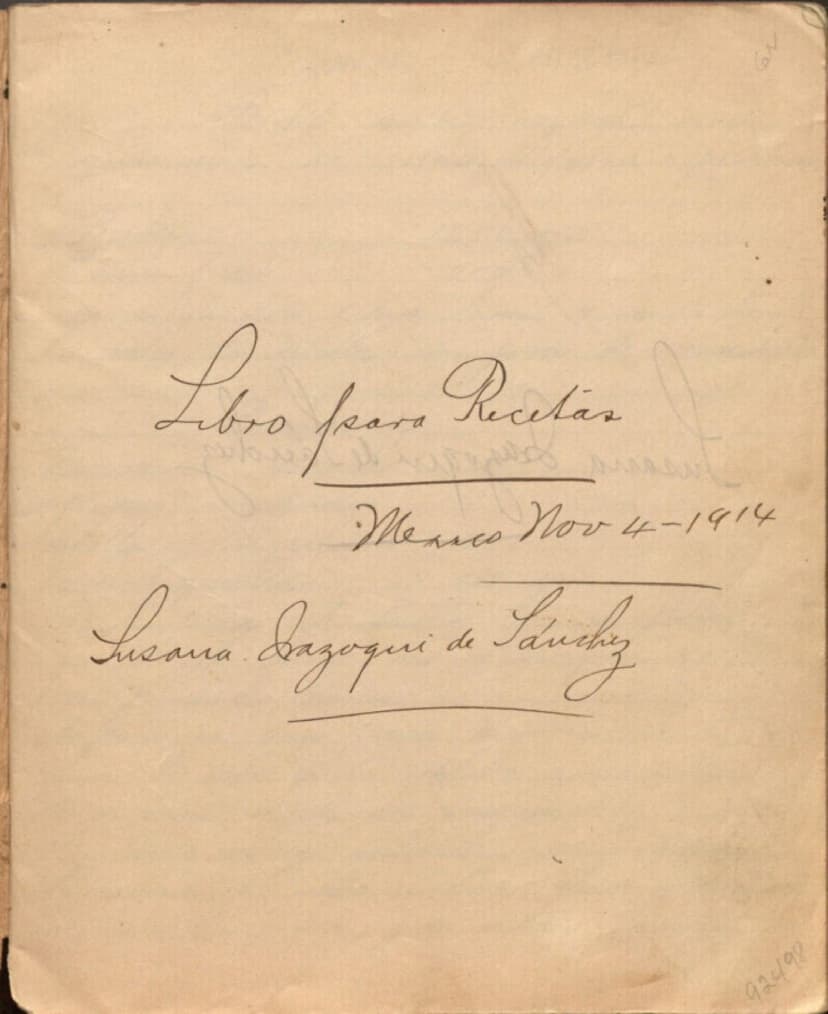 62
Libro para Recetas
Mexico Nov 4-1914
Susana Irazoqui de Sánchez
92498